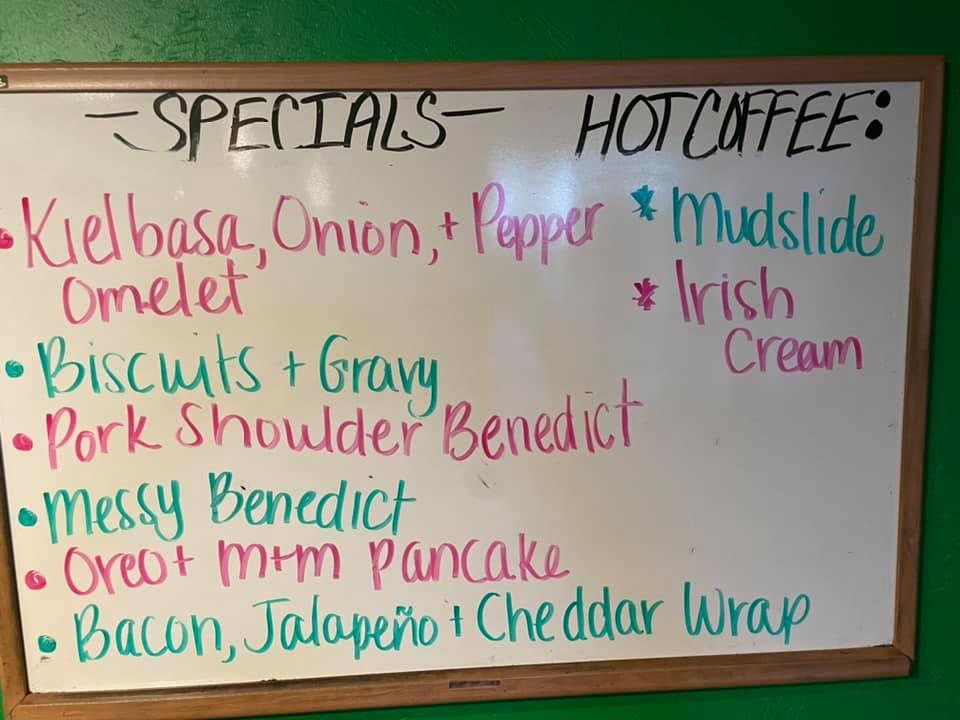 -SPECIALS-
• Kielbasa, Onion, + Pepper
Omelet
• Biscuits + Gravy
• Pork Shoulder Benedict
• Messy Benedict
• Oreo + m+m Pancake
• Bacon, Jalapeño + Cheddar Wrap
HOT COFFEE:
* Mudslide
* Irish
Cream